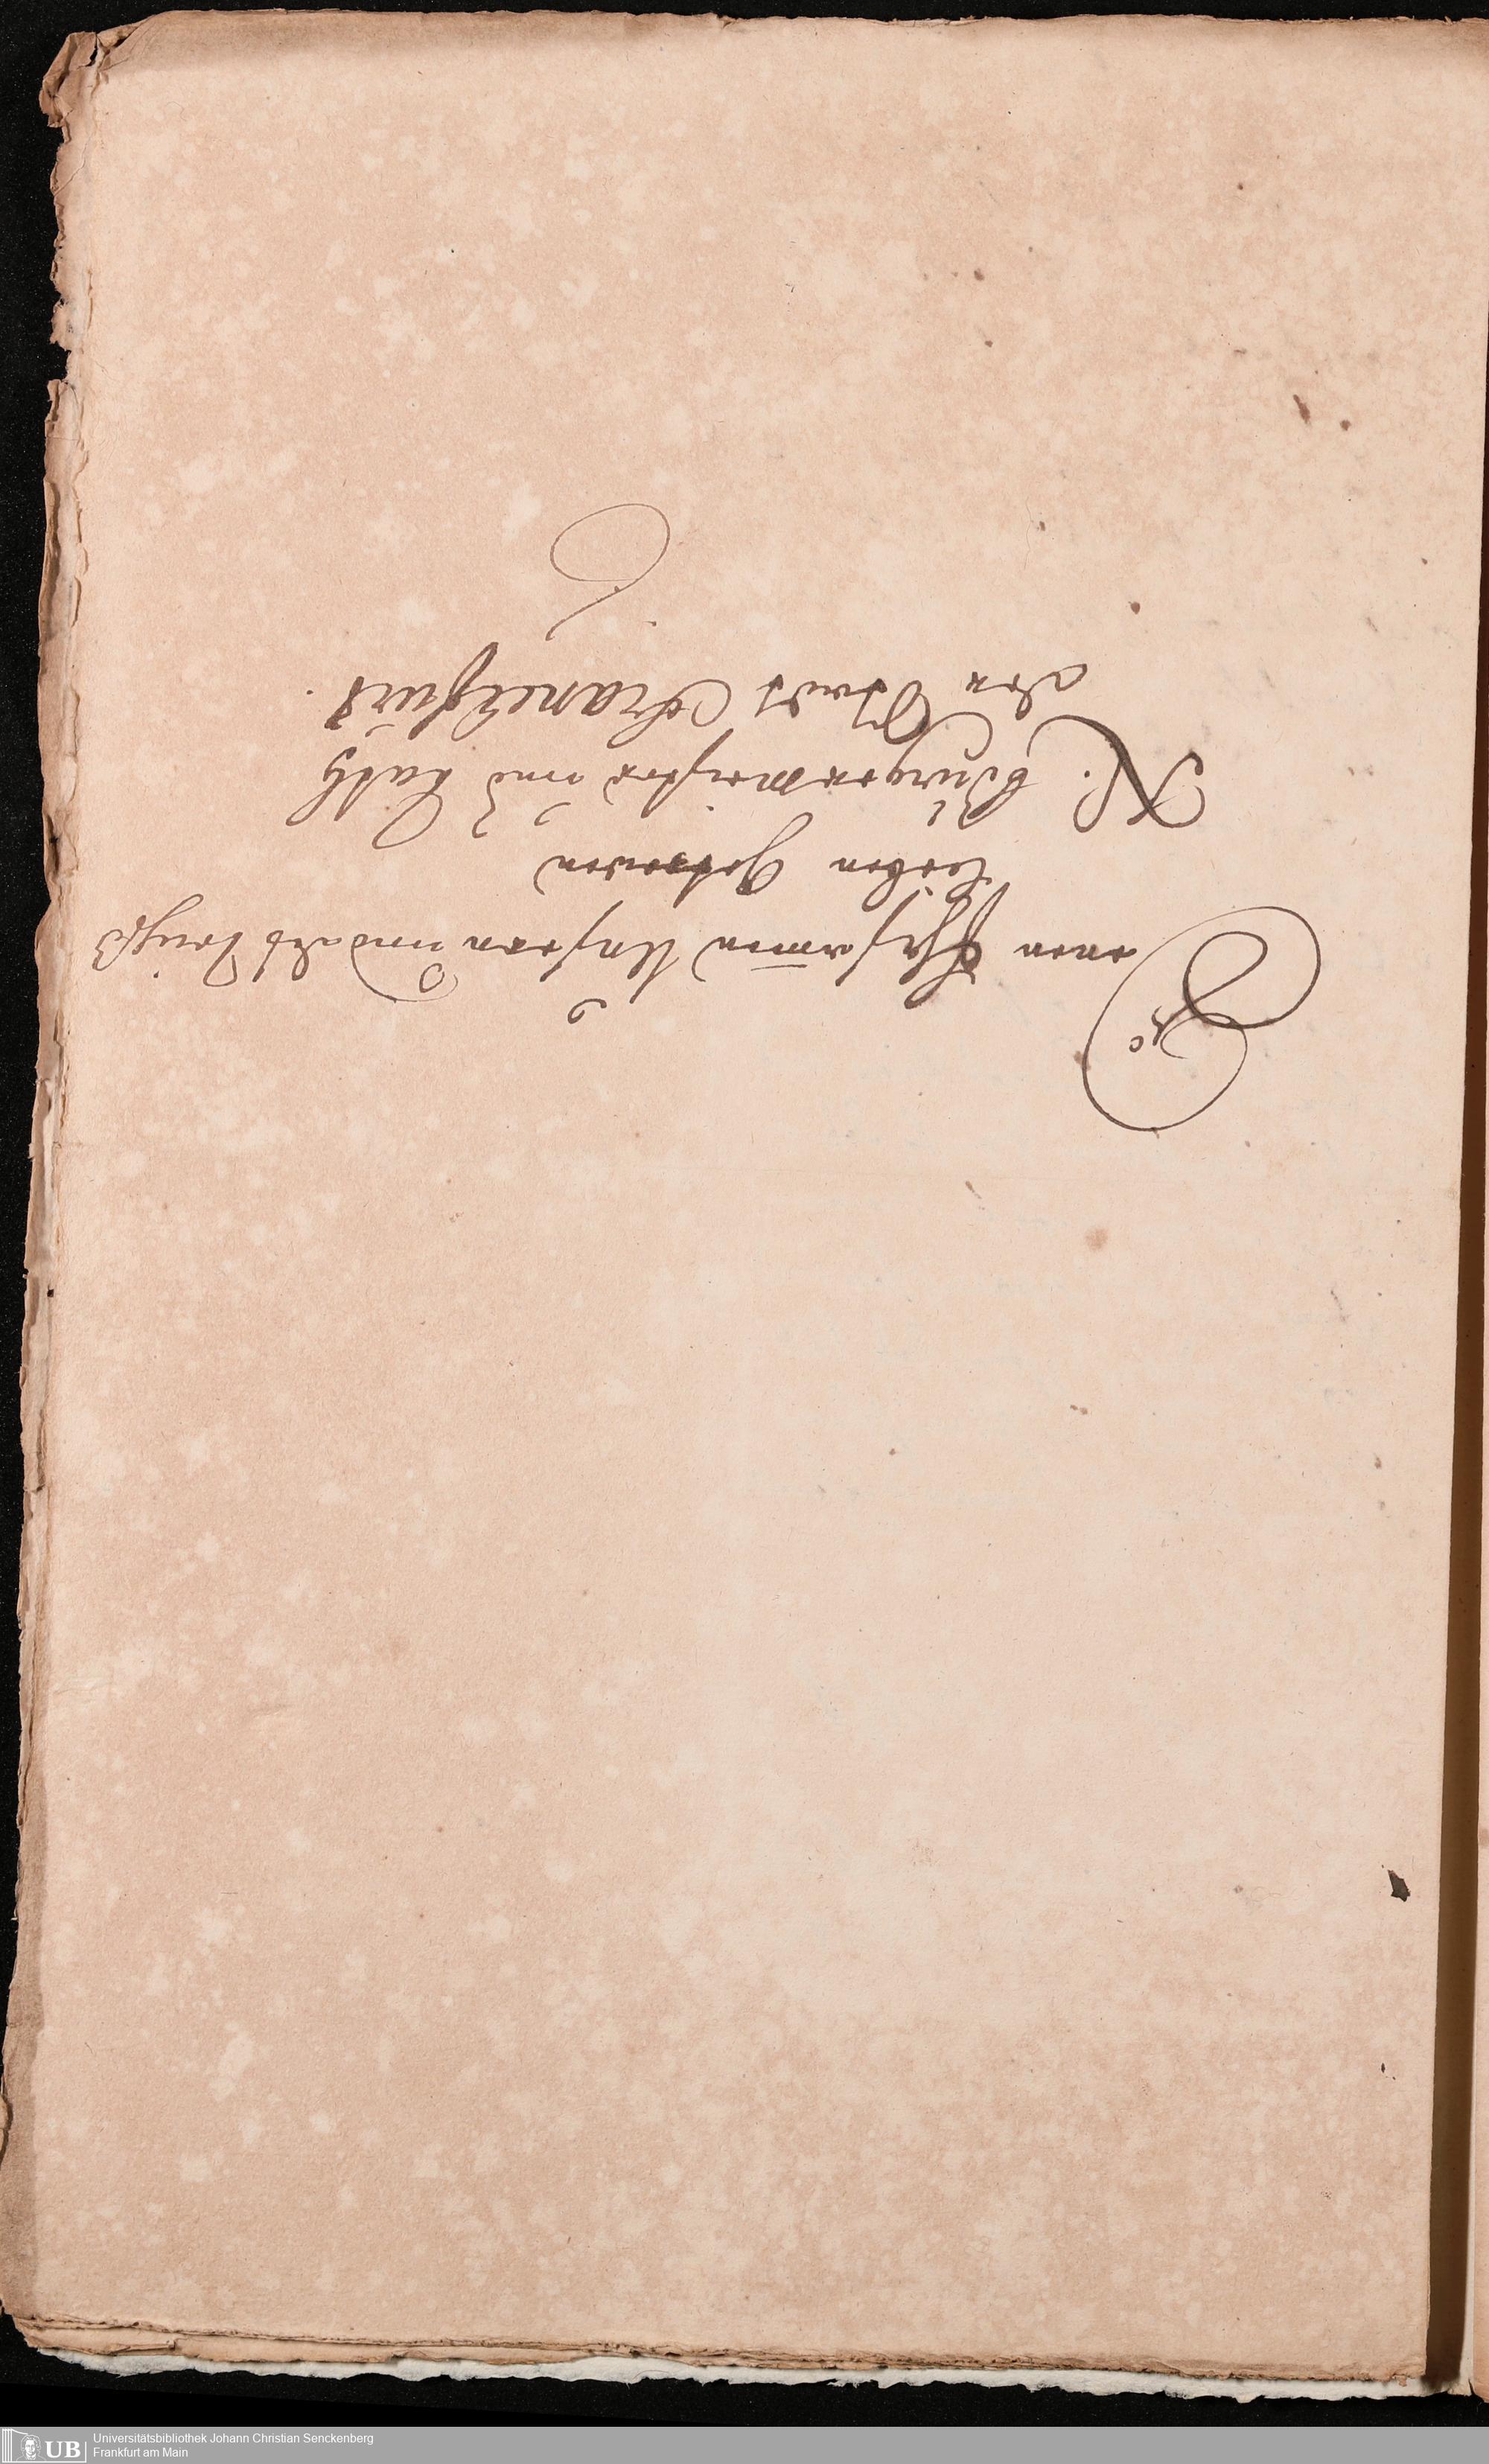 Denen Ehrsamen Unseren und des Reichs
Lieben Getrewen
N. Bürgermeister und Rath
der Statt Franckfurt.
UB
Universitätsbibliothek Johann Christian Senckenberg
Frankfurt am Main